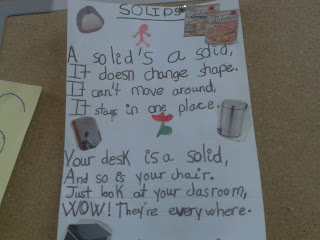 SOLIDS
A solid's a solid,
It doesn't change shape.
It can't move around,
It stays in one place.
Your desk is a solid,
And so is your chair.
Just look at your clasroom,
WOW! They're everywhere.